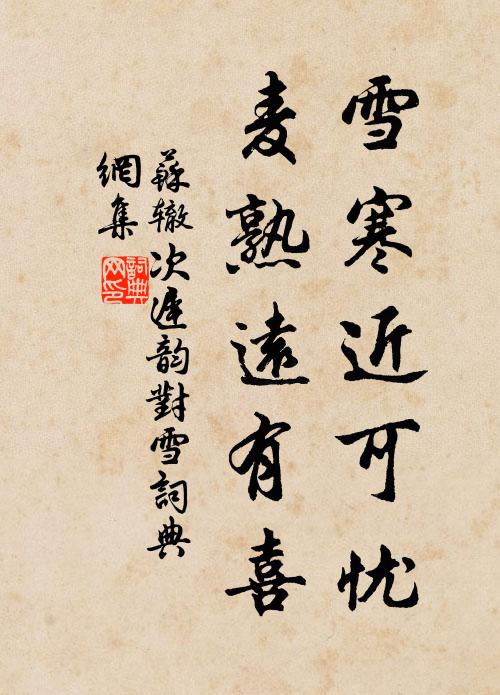 雪寒近可忧
麦熟遠有喜
蘇辙次遲韵對雪詞典
網集
詞典
网印